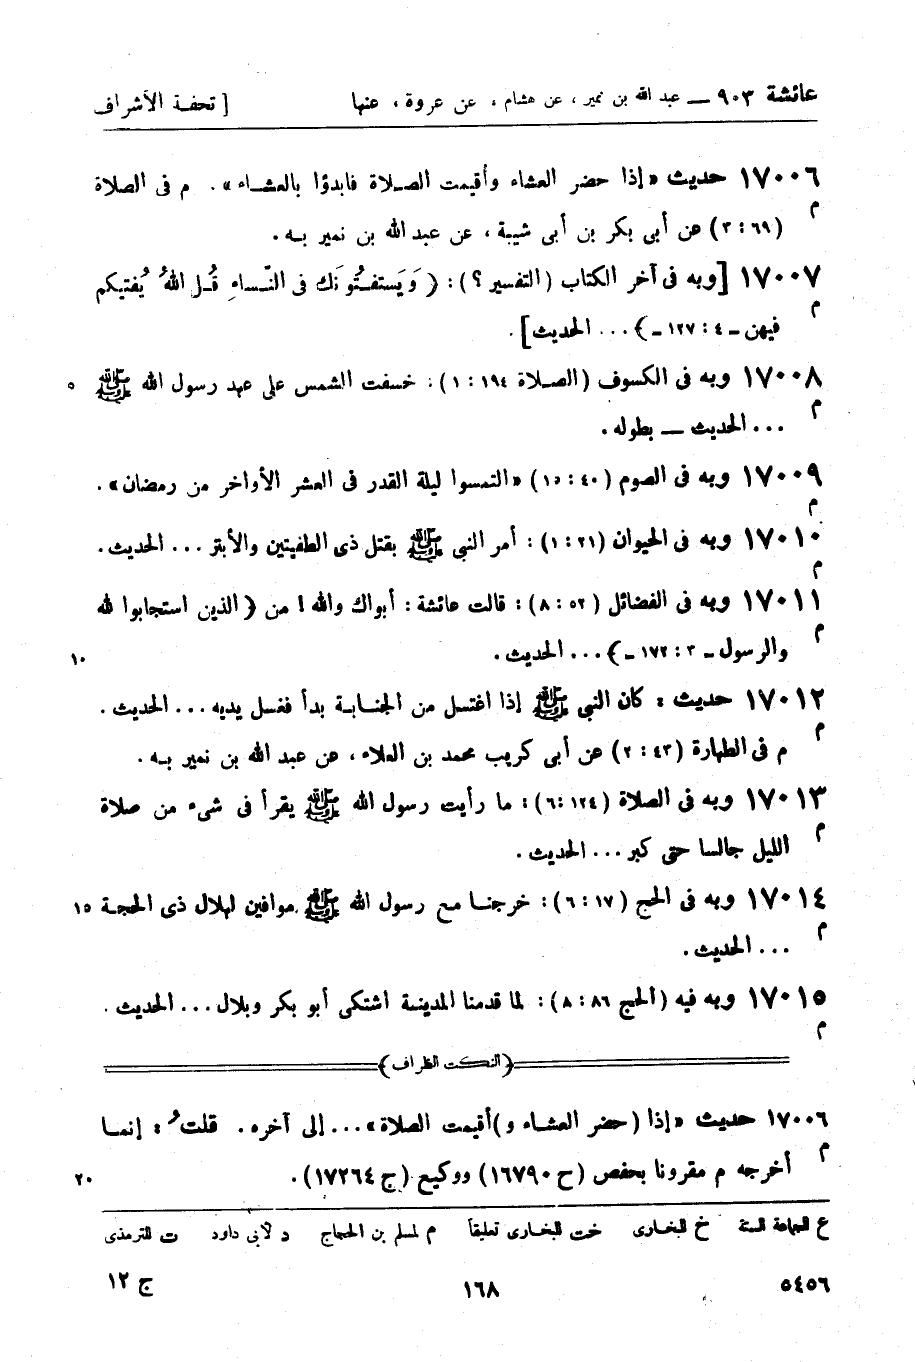 عائشة ٩٠٣ ــ عبد الله بن نمير ، عن هشام ، عن عروة ، عنها [ تحفة الأشراف
١٧٠٠٦ حديث «إذا حضر العشاء وأقيمت الصلاة فابدؤا بالعشاء» . م فى الصلاة
م
(٣:٦٩) عن أبى بكر بن أبى شيبة ، عن عبد الله بن نمير به .
١٧٠٠٧ [وبه فى آخر الكتاب (التفسير ؟) : ﴿ وَيَستفتُونَك فى النّساءِ قُل اللهُ يُفتيكم
م
فيهن ــ ٤ : ١٢٧ ــ﴾ . . . الحديث] .
١٧٠٠٨ وبه فى الكسوف (الصلاة ١٩٤ : ١) : خسفت الشمس على عهد رسول الله ﷺ ٥
م
. . . الحديث ــ بطوله .
١٧٠٠٩ وبه فى الصوم (٤٠ : ١٥) «التمسوا ليلة القدر فى العشر الأواخر من رمضان» .
م
١٧٠١٠ وبه فى الحيوان (٢١ : ١) : أمر النبى ﷺ بقتل ذى الطفيتين والأبتر . . . الحديث .
م
١٧٠١١ وبه فى الفضائل (٥٢ : ٨) : قالت عائشة : أبواك والله ! من ﴿ الذين استجابوا لله
م
والرسول ــ ٣ : ١٧٢ ــ﴾ . . . الحديث . ١٠
١٧٠١٢ حديث : كان النبى ﷺ إذا اغتسل من الجنابة بدأ فغسل يديه . . . الحديث .
م
م فى الطهارة (٤٣ : ٢) عن أبى كريب محمد بن العلاء ، عن عبد الله بن نمير به .
١٧٠١٣ وبه فى الصلاة (١٢٤ :٦) : ما رأيت رسول الله ﷺ يقرأ فى شىء من صلاة
م
الليل جالسا حتى كبر . . . الحديث .
١٧٠١٤ وبه فى الحج (١٧ : ٦) : خرجنا مع رسول الله ﷺ موافين لهلال ذى الحجة ١٥
م
. . . الحديث .
١٧٠١٥ وبه فيه (الحج ٨٦ : ٨) : لما قدمنا المدينة اشتكى أبو بكر وبلال . . . الحديث .
م
﴿النكت الظراف﴾
١٧٠٠٦ حديث «إذا (حضر العشاء و)أقيمت الصلاة» . . . إلى آخره . قلتُ : إنما
م
أخرجه م مقرونا بحفص (ح ١٦٧٩٠) ووكيع (ح ١٧٢٦٤) . ٢٠
ع للجماعة الستة خ للبخارى خت للبخارى تعليقاً م لمسلم بن الحجاج د لأبى داود ت للترمذى
٥٤٥٦ ١٦٨ ج ١٢